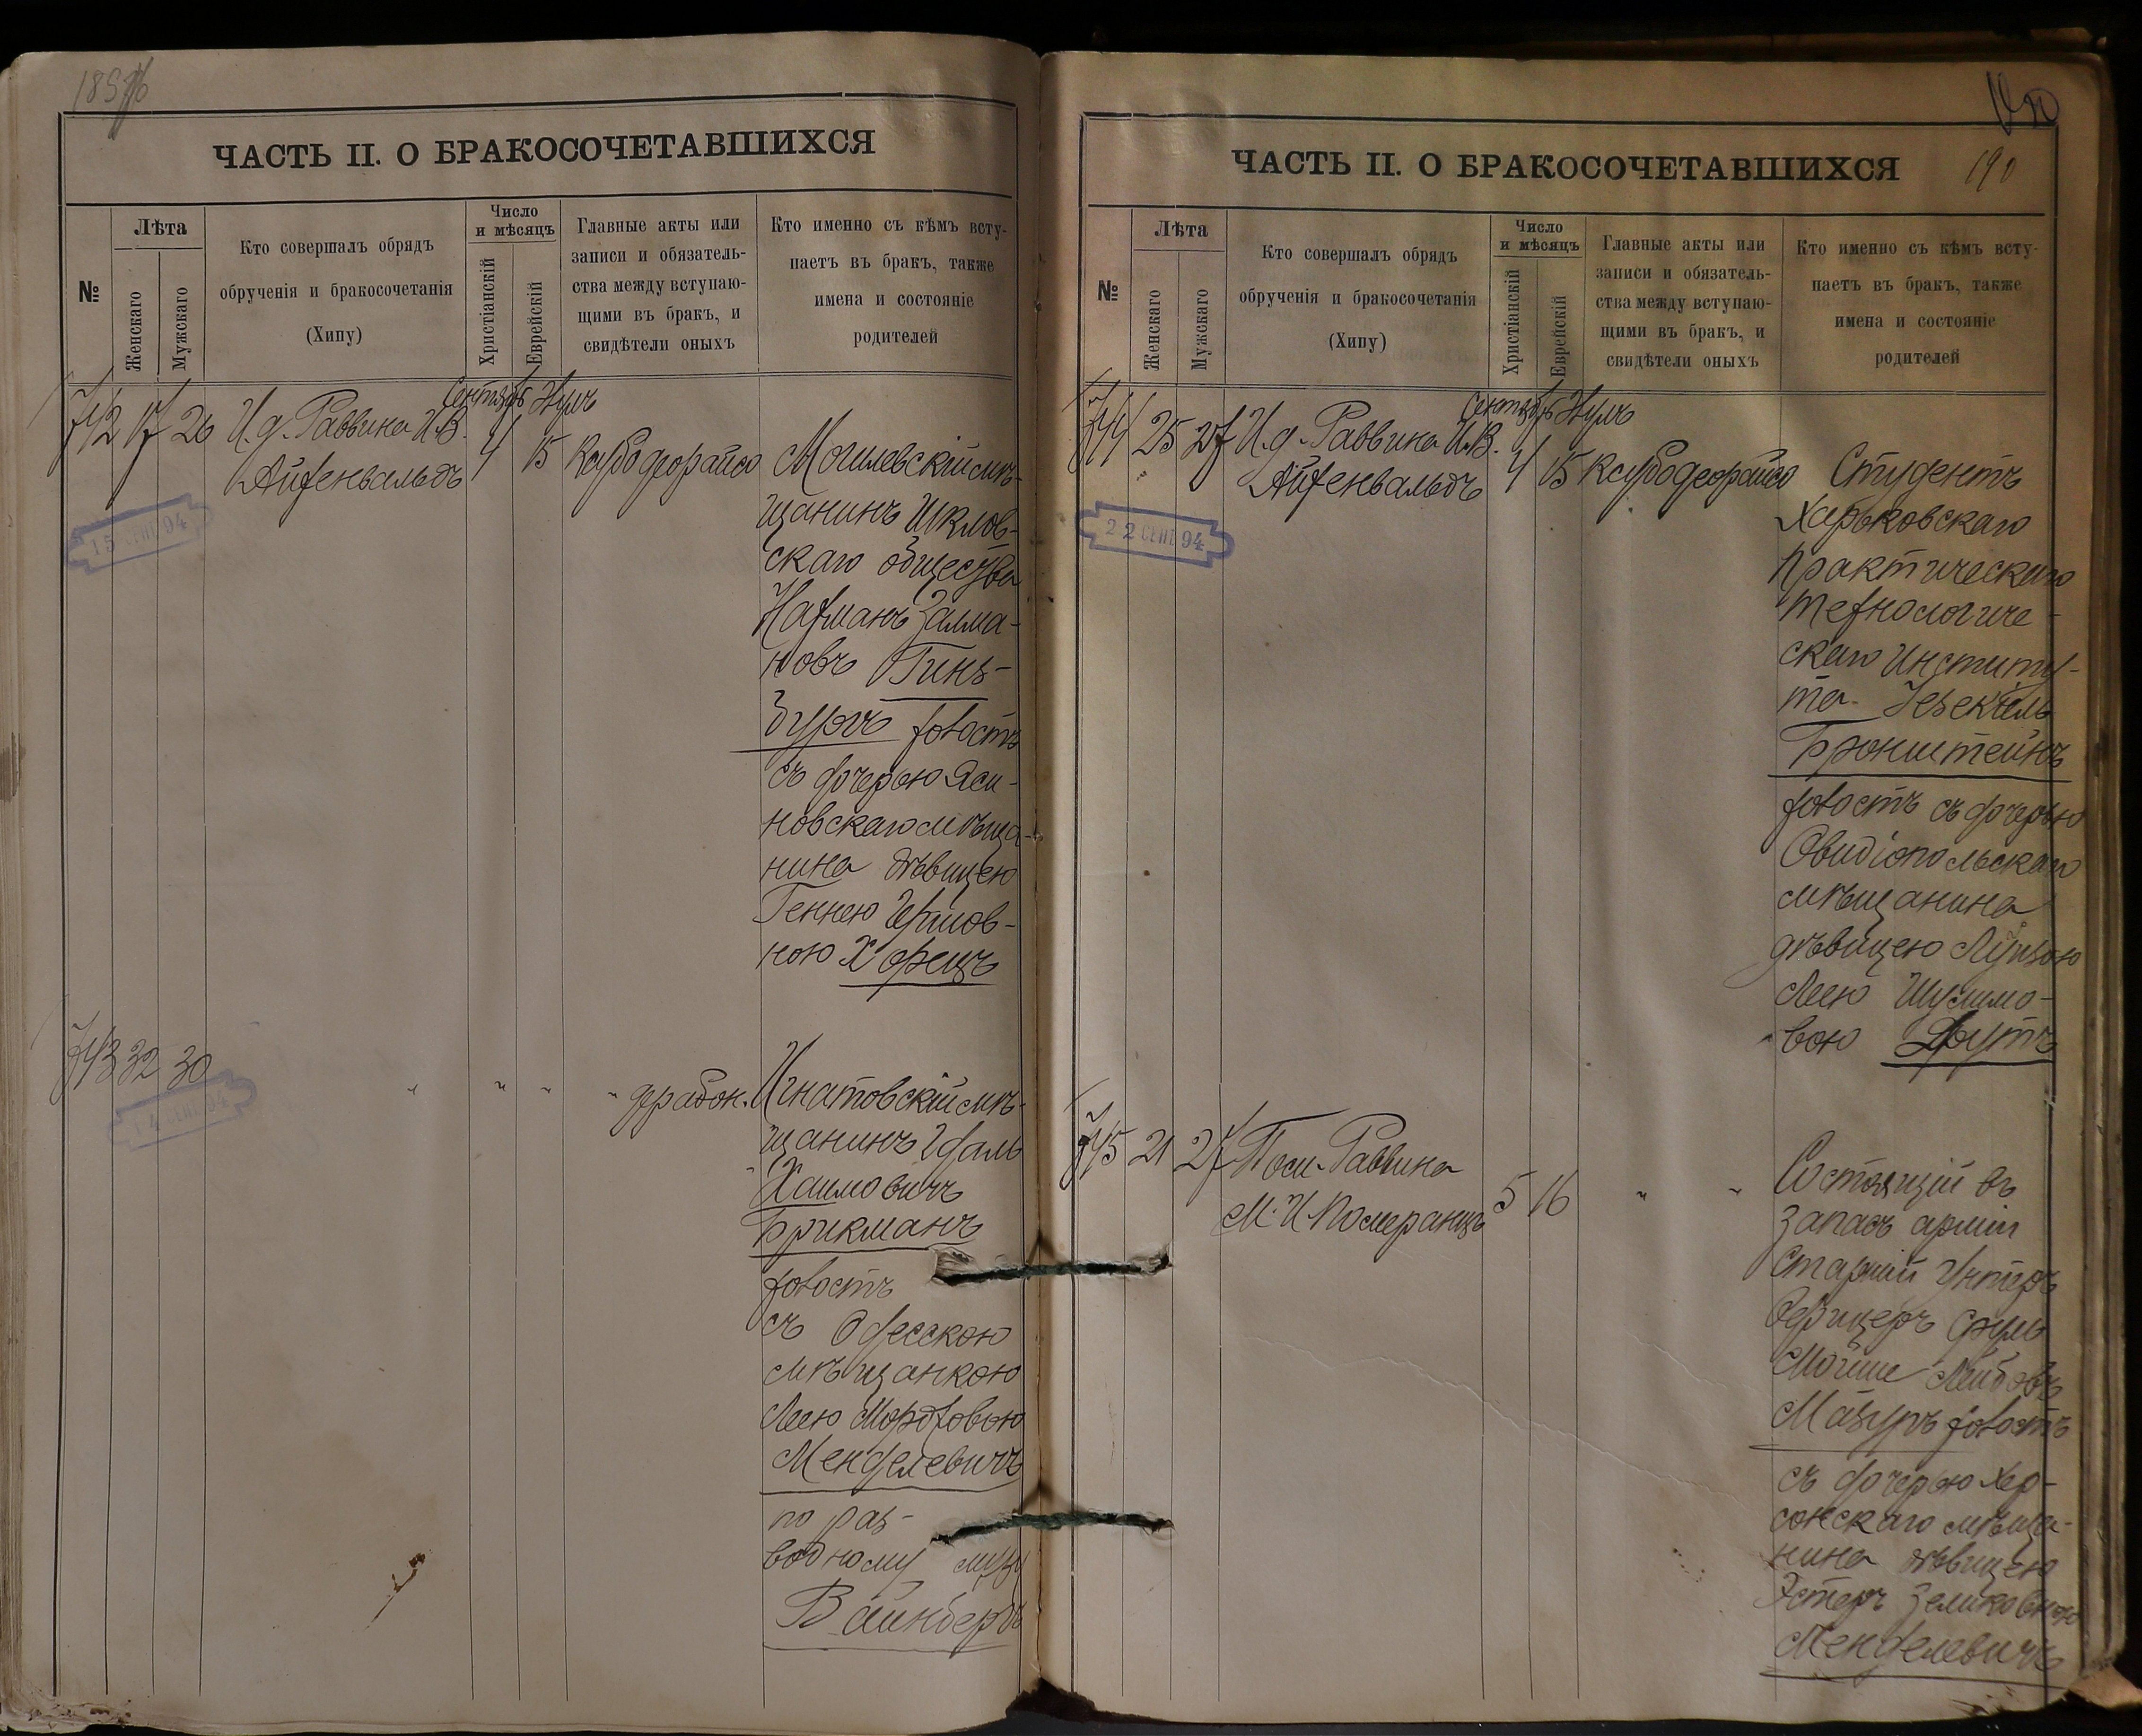 ЧАСТЬ II. О БРАКОСОЧЕТАВШИХСЯ
№
Лѣта
Женскаго
Мужскаго
Кто совершалъ обрядъ
обрученія и бракосочетанія
(Хипу)
Число
и мѣсяцъ
Христіанскій
Еврейскій
Главные акты или
записи и обязатель-
ства между вступаю-
щими въ бракъ, и
свидѣтели оныхъ
Кто именно съ кѣмъ всту-
паетъ въ бракъ, также
имена и состояніе
родителей
Сентябрь
742 17 26 И.д. Раввина И.В.
Айхенвальдъ
4 15
15 СЕН 94
Могилевскій мѣ-
щанинъ Шклов-
скаго общества
Нахманъ Залма-
новъ Гинз-
бургъ холостъ
съ дочерью Яси-
новскаго мѣща-
нина дѣвицею
Геннею Гершов-
ною Хорецъ
743 32 30 " " " "
14 СЕН 94
Игнатовскій мѣ-
щанинъ Гдаль
Хаимовичъ
Брикманъ
холостъ
съ Одесскою
мѣщанкою
Леею Мордховою
Менделевичъ
по раз-
водному мужу
Вайнбергъ
ЧАСТЬ II. О БРАКОСОЧЕТАВШИХСЯ
190
№
Лѣта
Женскаго
Мужскаго
Кто совершалъ обрядъ
обрученія и бракосочетанія
(Хипу)
Число
и мѣсяцъ
Христіанскій
Еврейскій
Главные акты или
записи и обязатель-
ства между вступаю-
щими въ бракъ, и
свидѣтели оныхъ
Кто именно съ кѣмъ всту-
паетъ въ бракъ, также
имена и состояніе
родителей
Сентябрь
744 25 27 И.д. Раввина И.В.
Айхенвальдъ
4 15
22 СЕН 94
Студентъ
Харьковскаго
практическаго
технологиче-
скаго Институ-
та Іезекіель
Бронштейнъ
холостъ съ дочерью
Овидіопольскаго
мѣщанина
дѣвицею Луизою
Леею Шулимо-
вою
745 21 27 Пом. Раввина
М.И. Померанцъ
5 16 " "
Состоящій въ
запасѣ арміи
Старшій Унтеръ
Офицеръ Сруль
Мойше Лейбовъ
Мазуръ холостъ
съ дочерью Хер-
сонскаго мѣща-
нина дѣвицею
Эстеръ Зеликовною
Менделевичъ